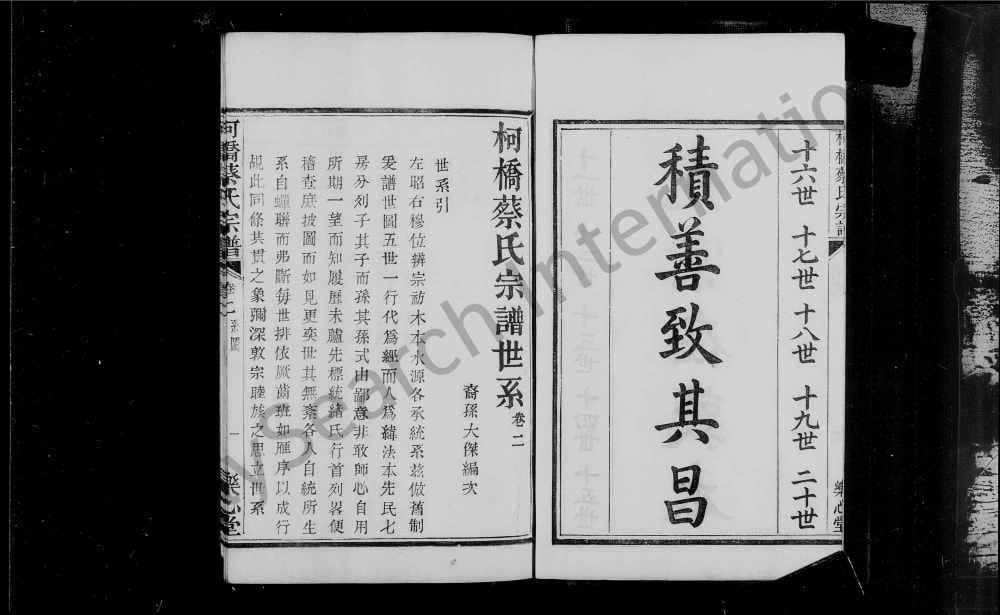 柯橋蔡氏宗譜
十六世 十七世 十八世 十九世 二十世
積善致其昌
樂心堂
柯橋蔡氏宗譜世系 卷二
裔孫大傑編次
世系引
左昭右穆位辨宗祊木本水源各承統系茲倣舊制
爰譜世圖五世一行代爲經而人爲緯法本先民七
房分列子其子而孫其孫式由鄙意非敢師心自用
所期一望而知履歷未臚先標統緒氏行首列畧便
稽查庶披圖而如見更奕世其無紊各人自統所生
系自蟬聯而弗斷每世排依厥齒班如雁序以成行
覘此同條其貫之象彌深敦宗睦族之思立世系
柯橋蔡氏宗譜 卷二 系圖 一 樂心堂
MySearch International